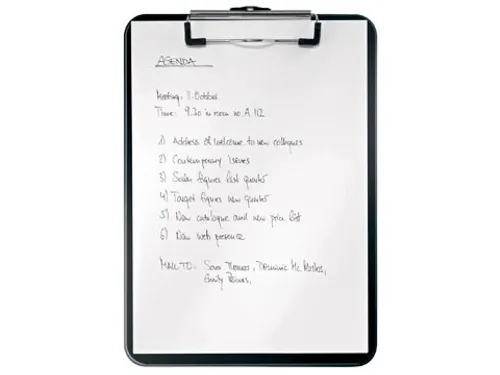 AGENDA
Meeting: 7. October
Time: 9.20 in room no. A 112
1) Address of welcome to new collegues
2) Contemporary Issues
3) Sales figures last quarter
4) Target figures new quarter
5) New catalogue and new price list
6) New web presence
MAIL TO: Thomas, Dominic Mc
Emily